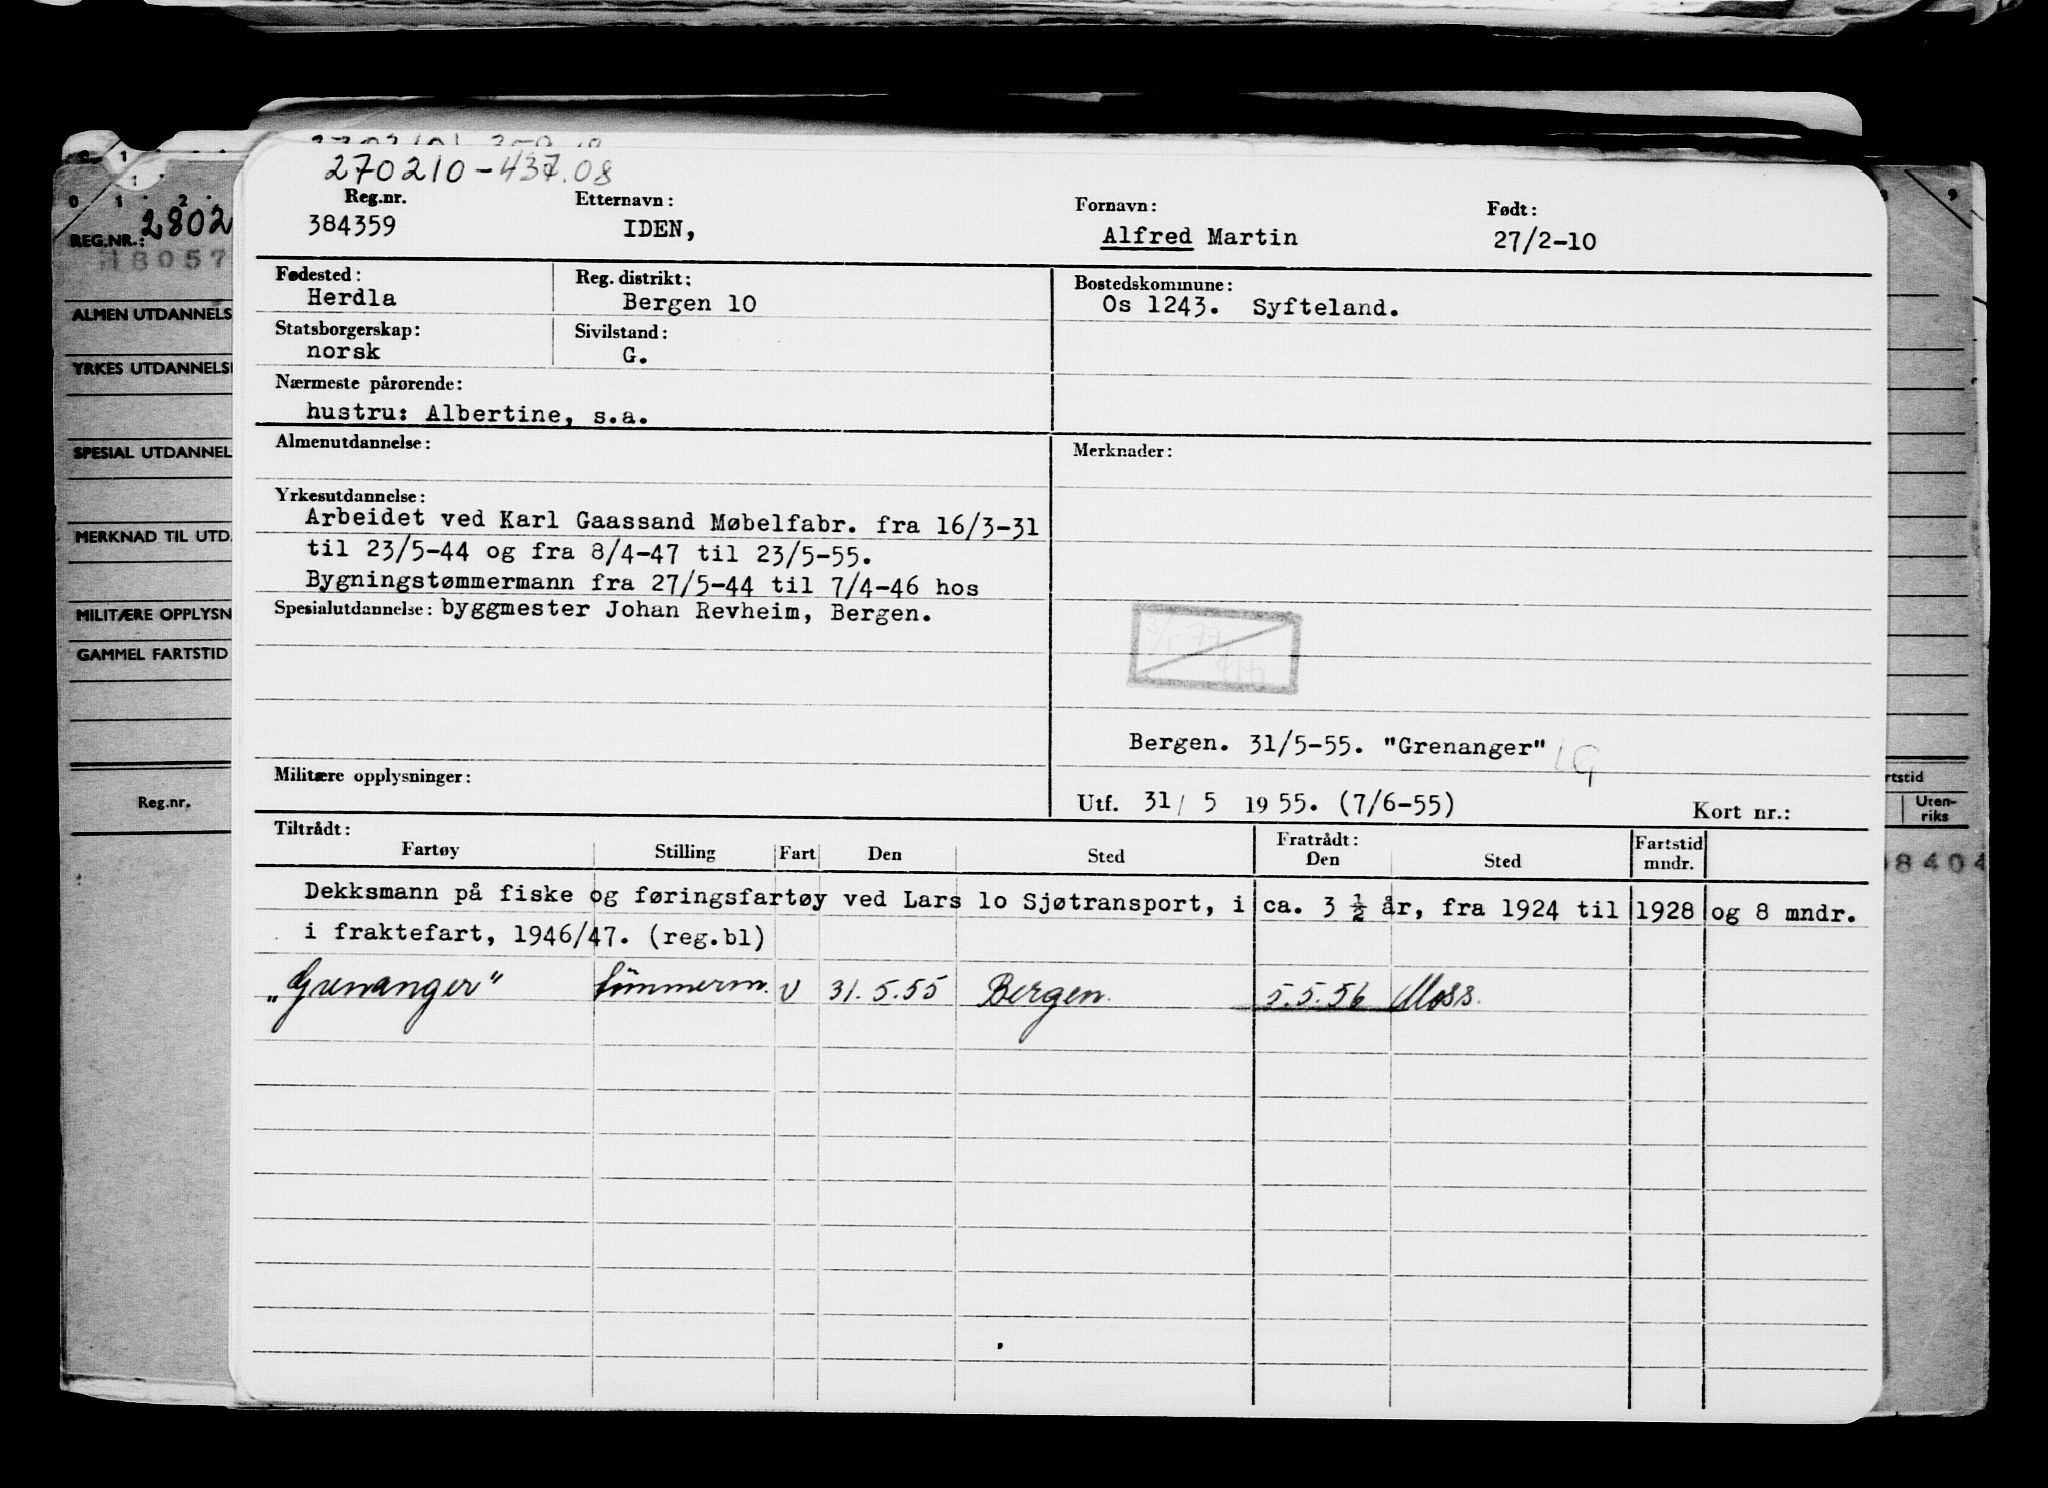 270210-437.08
Reg.nr. Etternavn: Fornavn: Født:
384359 IDEN, Alfred Martin 27/2-10
Fødested: Reg. distrikt: Bostedskommune:
Herdla Bergen 10 Os 1243. Syfteland.
Statsborgerskap: Sivilstand:
norsk G.
Nærmeste pårørende:
hustru: Albertine, s.a.
Almenutdannelse: Merknader:
Yrkesutdannelse:
Arbeidet ved Karl Gaassand Møbelfabr. fra 16/3-31
til 23/5-44 og fra 8/4-47 til 23/5-55.
Bygningstømmermann fra 27/5-44 til 7/4-46 hos
Spesialutdannelse: byggmester Johan Revheim, Bergen.
Bergen. 31/5-55. "Grenanger" LG
Militære opplysninger:
Utf. 31/ 5 1955. (7/6-55) Kort nr.:
Tiltrådt: Fratrådt: Fartstid
Fartøy Stilling Fart Den Sted Den Sted mndr.
Dekksmann på fiske og føringsfartøy ved Lars lo Sjøtransport, i ca. 3 ½ år, fra 1924 til 1928 og 8 mndr.
i fraktefart, 1946/47. (reg.bl)
"Grenanger" tømmerm. U 31.5.55 Bergen. 5.5.56 Moss.
0 1 2
2802
REG.NR.:
18057
ALMEN UTDANNELS
YRKES UTDANNELS
SPESIAL UTDANNEL
MERKNAD TIL UTD.
MILITÆRE OPPLYSN
GAMMEL FARTSTID
Reg.nr.
9
rtstid
Uten-
riks
8404